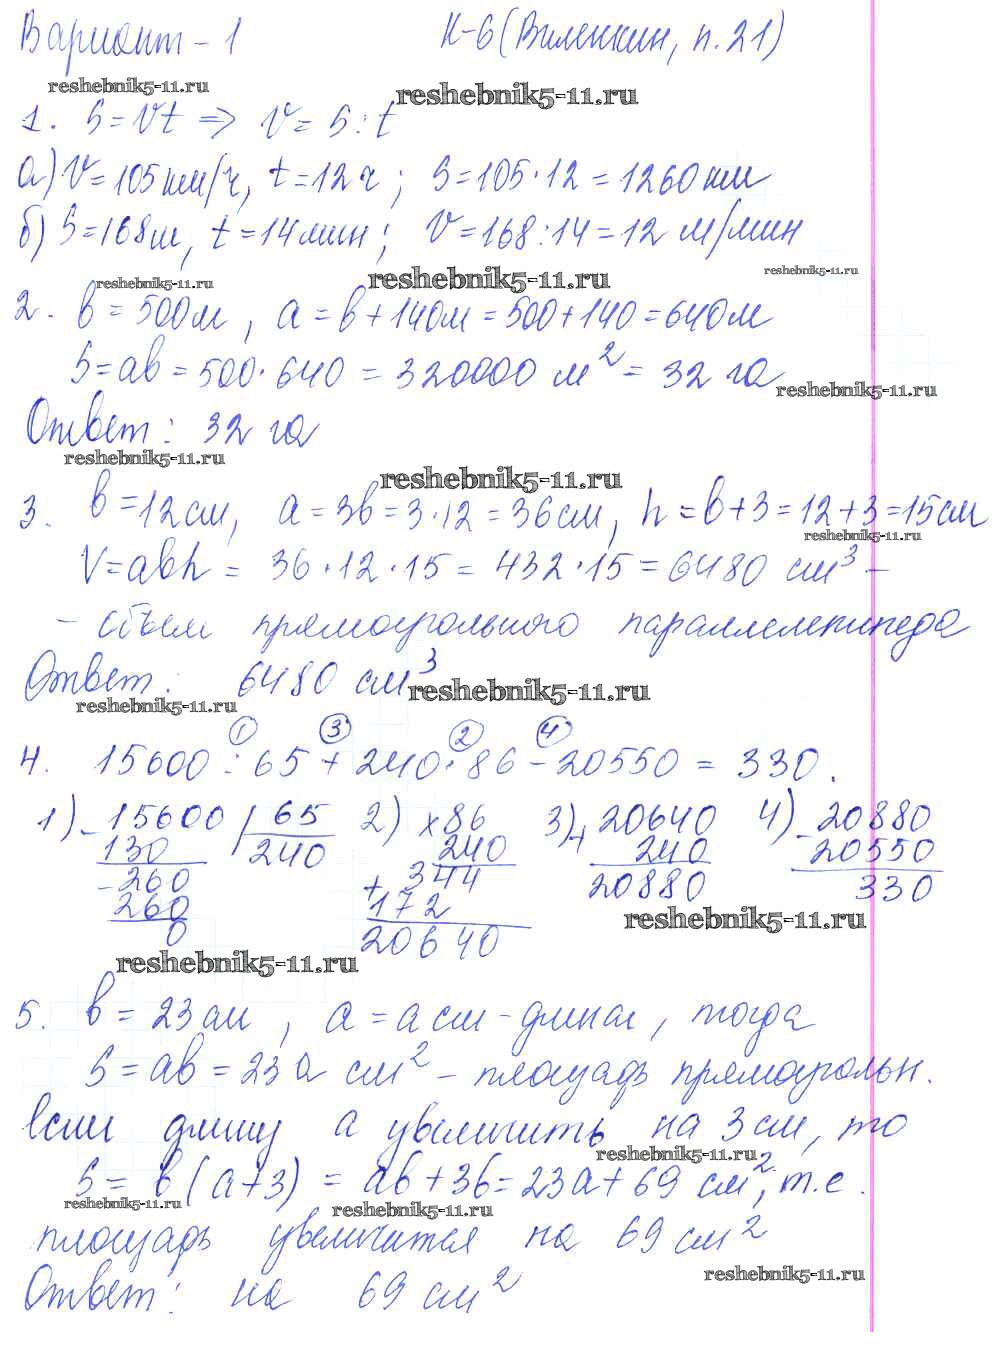 Вариант - 1 К-6 (Виленкин, п. 21)
reshebnik5-11.ru reshebnik5-11.ru
1. S = Vt ⇒ V = S : t
а) V = 105 км/ч, t = 12 ч ; S = 105 · 12 = 1260 км
б) S = 168 м, t = 14 мин ; V = 168 : 14 = 12 м/мин
reshebnik5-11.ru reshebnik5-11.ru reshebnik5-11.ru
2. b = 500 м , a = b + 140 м = 500 + 140 = 640 м
S = ab = 500 · 640 = 320000 м² = 32 га
reshebnik5-11.ru
Ответ : 32 га
reshebnik5-11.ru reshebnik5-11.ru
3. b = 12 см, a = 3b = 3 · 12 = 36 см, h = b + 3 = 12 + 3 = 15 см
reshebnik5-11.ru
V = abh = 36 · 12 · 15 = 432 · 15 = 6480 см³ –
– объем прямоугольного параллелепипеда
Ответ : 6480 см³
reshebnik5-11.ru reshebnik5-11.ru
① ③ ② ④
4. 15600 : 65 + 240 · 86 – 20550 = 330.
1) – 15600 | 65 2) × 86 3) + 20640 4) – 20880
130 240 240 240 20550
– 260 + 344 20880 330
260 172
0 20640
reshebnik5-11.ru
reshebnik5-11.ru
5. b = 23 см , a = a см – длина , тогда
S = ab = 23a см² – площадь прямоугольн.
Если длину a увеличить на 3 см, то
reshebnik5-11.ru
S = b (a + 3) = ab + 3b = 23a + 69 см², т.е.
reshebnik5-11.ru reshebnik5-11.ru
площадь увеличится на 69 см²
reshebnik5-11.ru
Ответ : на 69 см²